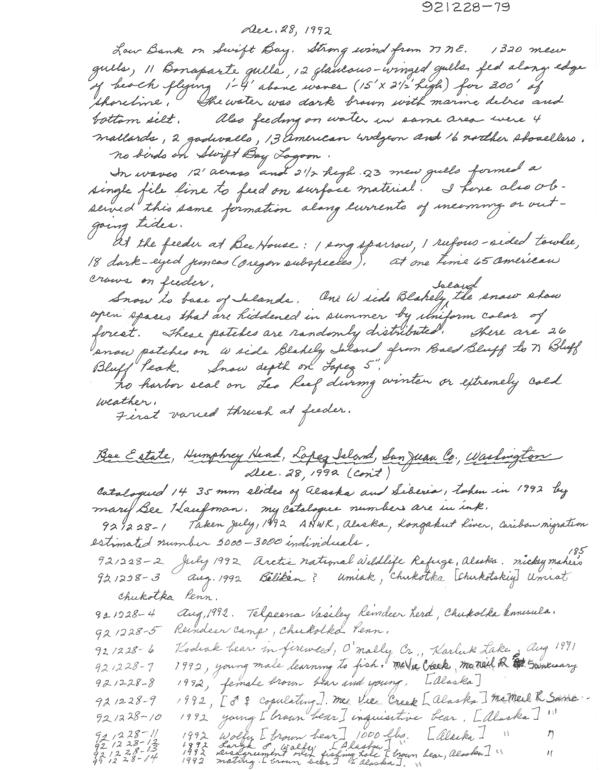 921228-79
Dec. 28, 1992
Low Bank on Swift Bay. Strong wind from NNE. 1320 mew
gulls, 11 Bonaparte gulls, 12 glaucous-winged gulls fed along edge
of beach flying 1'-4' above waves (15' x 2½' high) for 200' of
shoreline. The water was dark brown with marine debres and
bottom silt. Also feeding on water in same area were 4
mallards, 2 gadwalls, 13 American widgeon and 16 norther shovellers.
No birds on Swift Bay Lagoon.
In waves 12' across and 2½ high 23 mew gulls formed a
single file line to feed on surface material. I have also ob-
served this same formation along currents of incoming or out-
going tides.
At the feeder at Bee House: 1 song sparrow, 1 rufous-sided towhee,
18 dark-eyed juncos (Oregon subspecies). At one time 65 American
crows on feeder.
Snow to base of Islands. One W side Blakely Island the snow show
open spaces that are hiddened in summer by uniform color of
forest. These patches are randomly distributed. There are 26
snow patches on W side Blakely Island from Bald Bluff to N Bluff
Bluff Peak. Snow depth on Lopez 5".
No harbor seal on Leo Reef during winter or extremely cold
weather.
First varied thrush at feeder.
Bee Estate, Humphrey Head, Lopez Island, San Juan Co, Washington
Dec. 28, 1992 (con't)
Catalogued 14 35 mm slides of Alaska and Siberia, taken in 1992 by
Mary Bee Kaufman. My catalogue numbers are in ink.
921228-1 Taken July, 1992 ANWR, Alaska, Kongakut River, caribou migration
estimated number 2000-3000 individuals.
921228-2 July 1992 Arctic National Wildlife Refuge, Alaska.
921228-3 Aug. 1992 ? Umiak, Chukotka [Chukotskiy]
Chukotka Penn.
921228-4 Aug, 1992. Vasiley Reindeer herd, Chukolka
921228-5 Reindeer camp, Chukolka Penn.
921228-6 Kodiak bear in fireweed, O'Mally Cr., Karluk Lake, Aug 1991
921228-7 1992, young male learning to fish. Creek, McNeil R Sanctuary
921228-8 1992, female brown bear and young. [Alaska]
921228-9 1992, [♂ ♀ copulating]. Creek [Alaska] McNeil R
921228-10 1992 young [brown bear] inquisitive bear. [Alaska] " "
921228-11 1992 Wolfy [brown bear] 1000 lbs. [Alaska] " "
921228-12 1992 Large ♂, Wolfy [Alaska] "
921228-13 1992 disagreement over fishing hole [brown bear, Alaska] " "
921228-14 1992 mating. [brown bear] [Alaska]. "